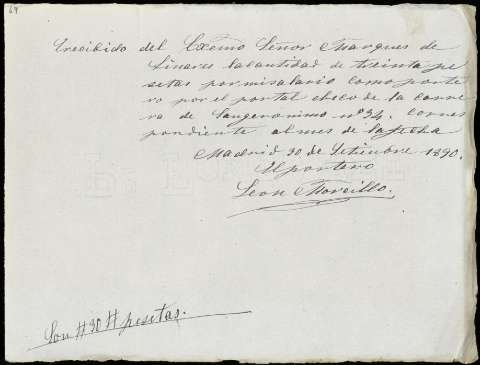 64
Erecibido del Exemo Señor Marques de
Linares la cantidad de treinta pe
setas por mi salario como porte
ro por el portal chico de la carre
ra de Sangeronimo nº 34. Corres
pondiente al mes de la fecha
Madrid 30 de Setiembre 1890.
El portero
Leon Morcillo.
Son # 30 # pesetas.